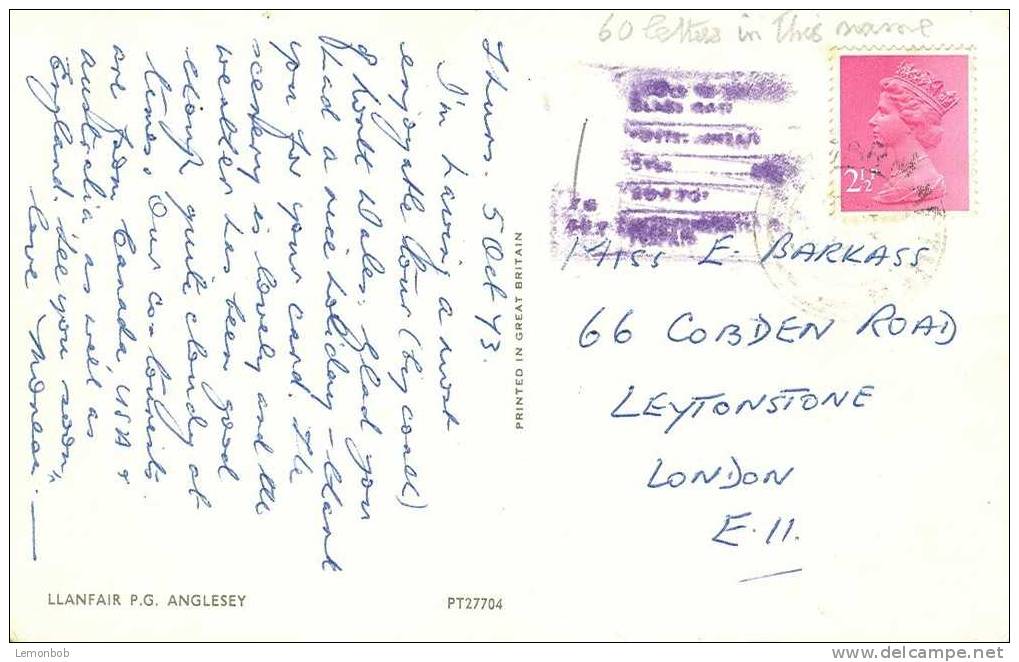 60 letters in this name
2½
Thurs. 5 Oct 43.
I'm having a most
enjoyable tour (by coach)
of North Wales. Glad you
had a nice holiday - thank
you for your card. The
scenery is lovely and the
weather has been good
though quite cloudy at
times. Our co-tourists
are from Canada, USA &
Australia as well as
England. See you soon,
love
MISS E. BARKASS
66 COBDEN ROAD
LEYTONSTONE
LONDON
E.11.
PRINTED IN GREAT BRITAIN
LLANFAIR P.G. ANGLESEY
PT27704
Lemonbob
www.delcampe.net